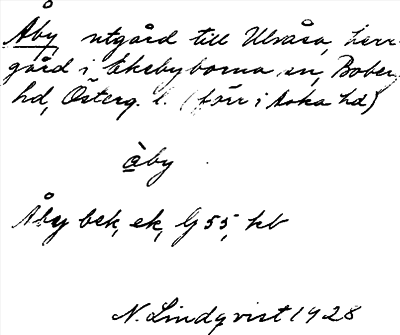 Åby utgård till Ulvåsa, herr-
gård i Ekebyborna sn, Boberg
hd, Österg. l. (förr i Aska hd)
åby
Åby bek, ek, G 55, kb
N. Lindqvist 1928